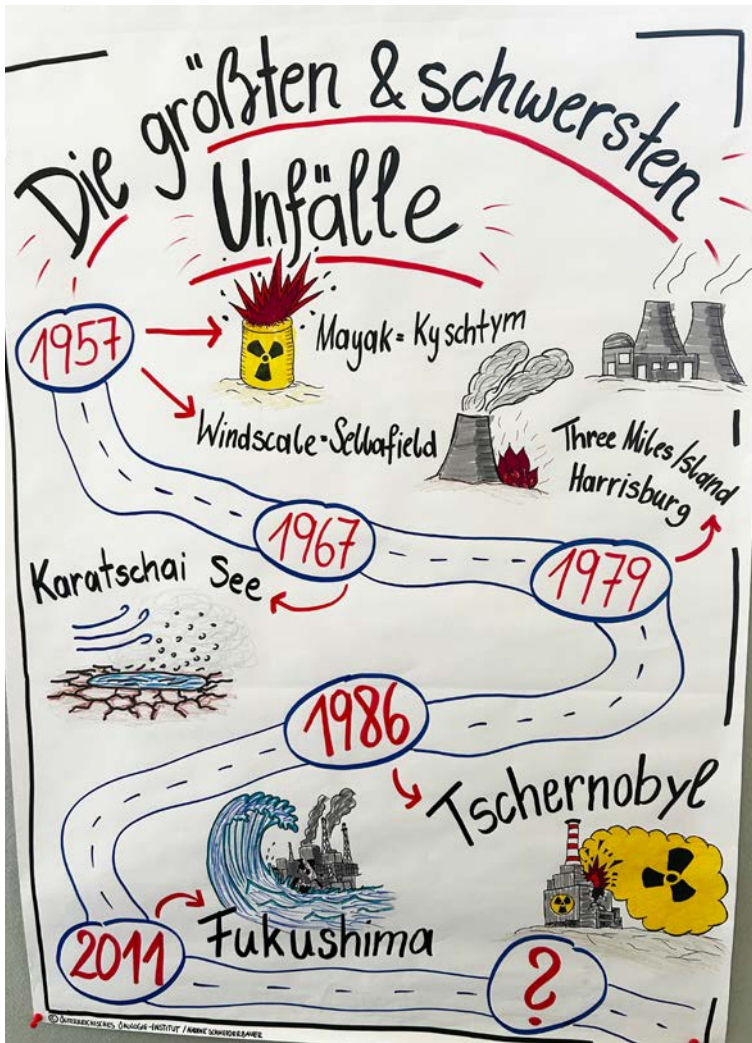 Die größten & schwersten
Unfälle
1957
Mayak = Kyschtym
Windscale = Sellafield
Three Miles Island
Harrisburg
1967
1979
Karatschai See
1986
Tschernobyl
Fukushima
2011
?
© ÖSTERREICHISCHES ÖKOLOGIE-INSTITUT /